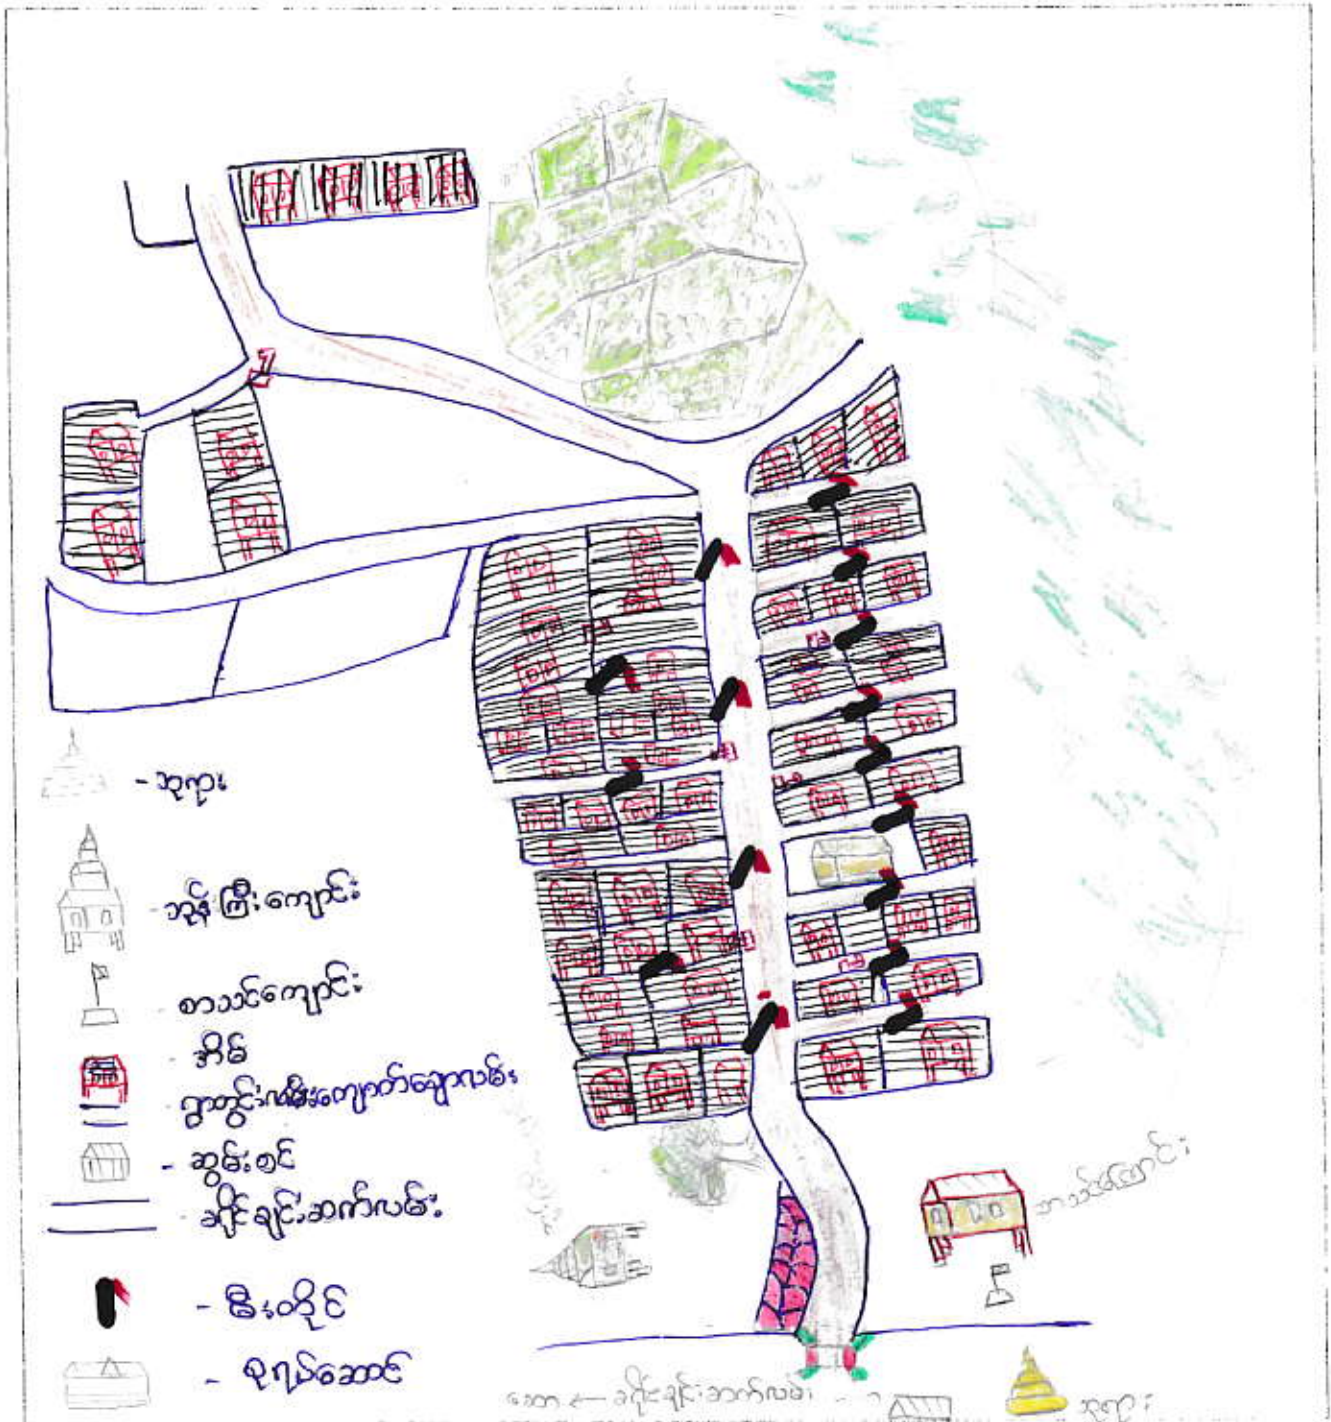 - ဘုရား
- ဘုန်းကြီးကျောင်း
- စာသင်ကျောင်း
- အိမ်
- ရွာတွင်းလမ်းကျောက်ချောလမ်း
- ဆွမ်းစင်
- ခရိုင်ချင်းဆက်လမ်း
- မီးတိုင်
- စုရပ်ဆောင်
စာသင်ကျောင်း
← ခရိုင်ချင်းဆက်လမ်း
ဘုရား